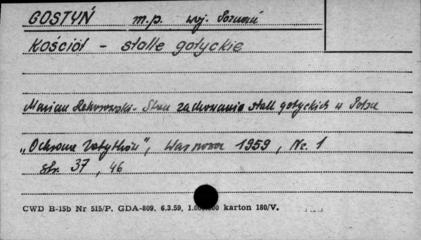 GOSTYŃ m.p. woj. Poznań
Kościół - stalle gotyckie
Marian Kornowski - Stan zachowania stall gotyckich w Polsce
„Ochrona Zabytków", Warszawa 1959, Nr. 1
str. 37, 46
CWD B-15b Nr 515/P. GDA-809. 6.3.59, karton 180/V.